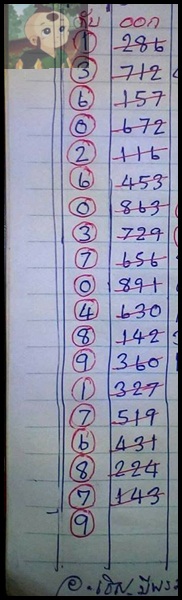 ลับ ออก
1 286
3 712
6 157
0 672
2 116
6 453
0 863
3 729
7 656
0 891
4 630
8 142
9 360
1 327
7 519
6 431
8 224
7 143
9